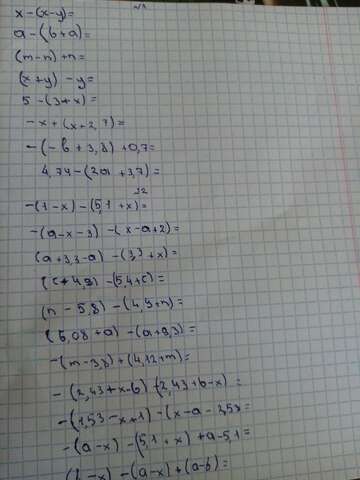 x-(x-y)=
a-(b+a)=
(m-n)+n=
(x+y)-y=
5-(3+x)=
-x+(x+2,7)=
-(-b+3,8)+0,7=
4,74-(2a+3,7)=
-(1-x)-(5,1+x)=
-(a-x-3)-(x-a+2)=
(a+3,3-a)-(3,3+x)=
(c+4,9)-(5,4+c)=
(n-5,8)-(4,9+n)=
(6,08+a)-(a+9,3)=
-(m-3,8)+(4,12+m)=
-(2,43+x-b)-(2,43+b-x)=
-(1,53-x+1)-(x-a-1,53=
-(a-x)-(5,1+x)+a-5,1=
(b-x)-(a-x)+(a-b)=